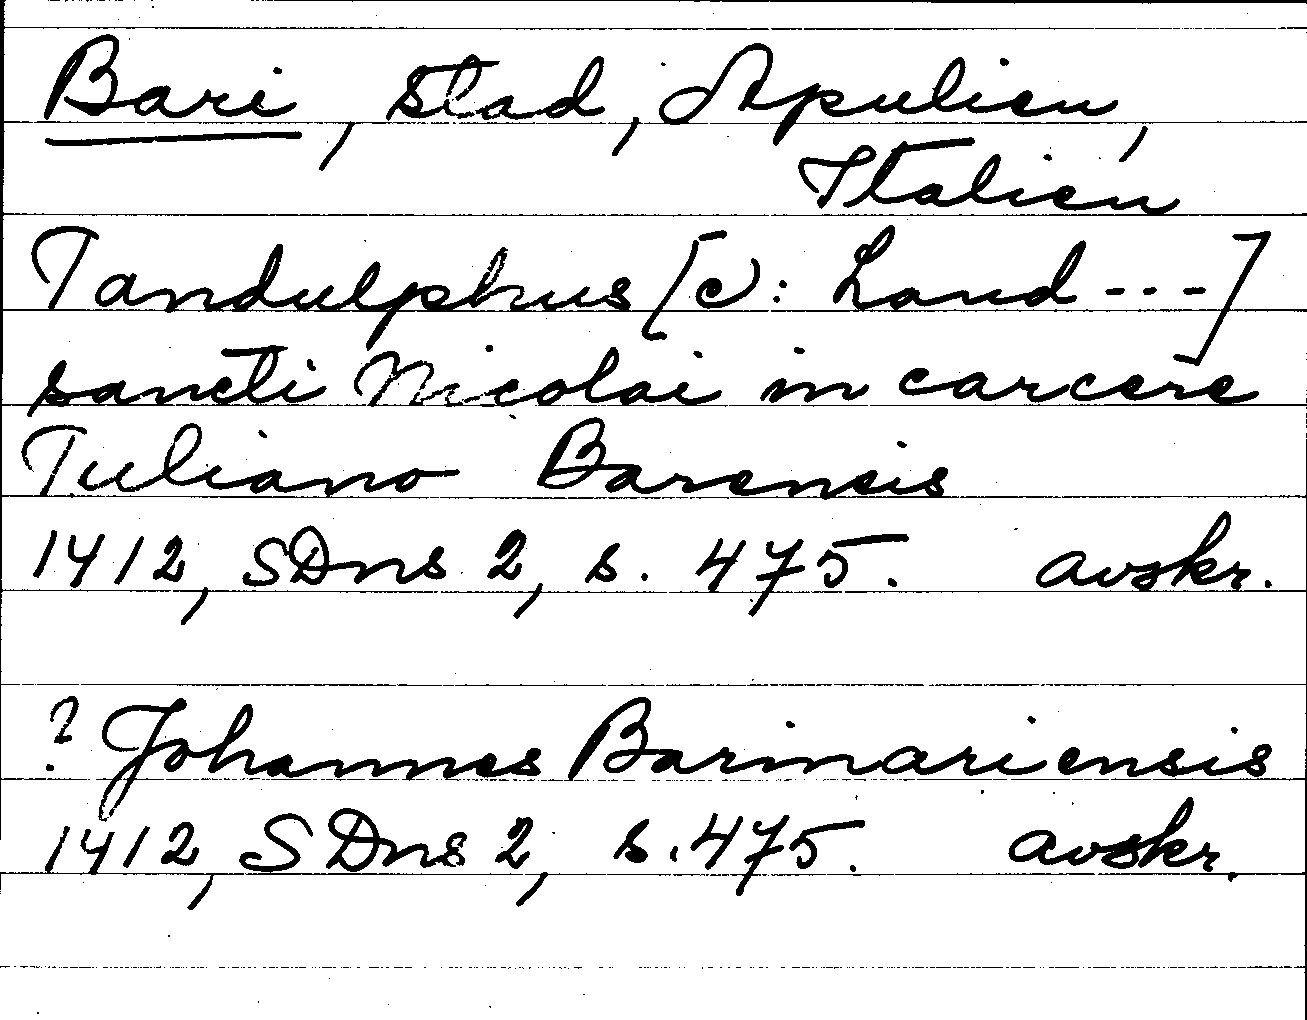 Bari, stad, Apulien,
Italien
Tandulphus [ɔ: Land---]
sancti Nicolai in carcere
Tuliano Barensis
1412, SDns 2, s. 475. avskr.
? Johannes Barinariensis
1412, SDns 2, s. 475. avskr.